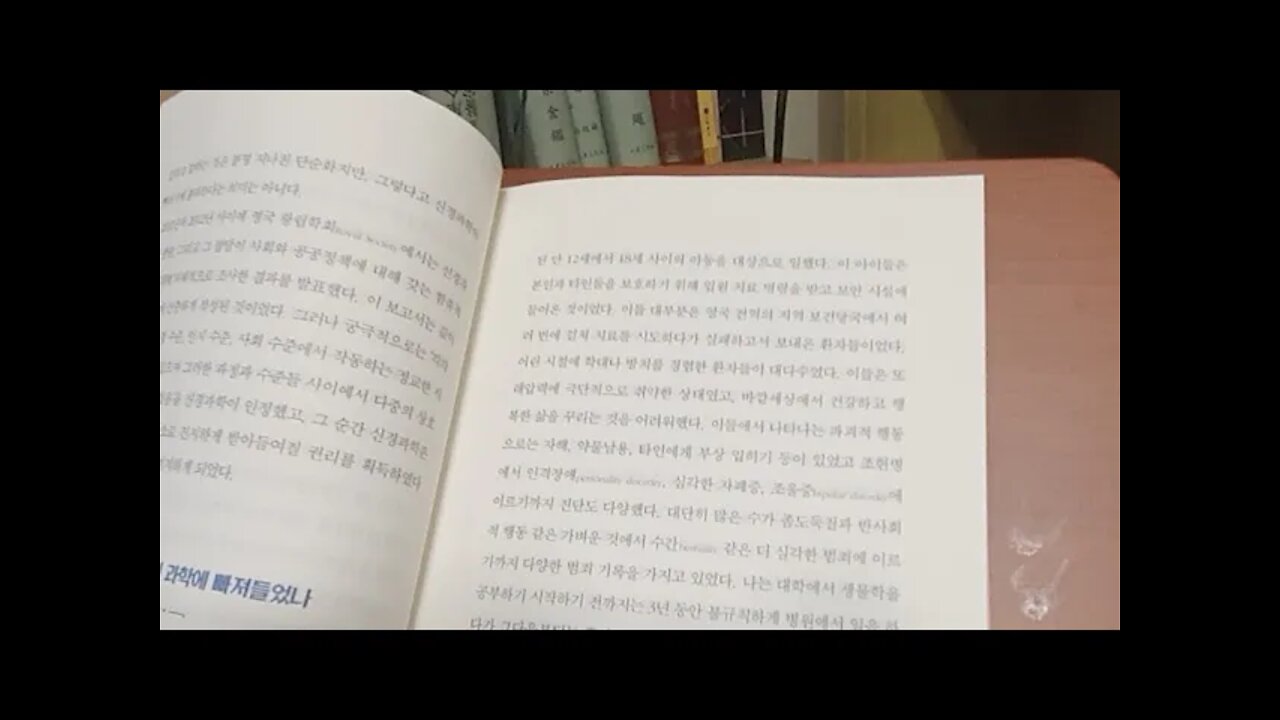 분명 지나친 단순화지만, 그렇다고 신경과학이
의미는 아니다.
사이에 영국 왕립학회Royal Society에서는 신경과
그리고 그 발달이 사회와 공공정책에 대해 갖는 함축적
조사한 결과를 발표했다. 이 보고서는 깊이
작성된 것이었다. 그러나 궁극적으로는 '작기
수준, 인지 수준, 사회 수준에서 작동하는 정교한 시
그러한 과정과 수준들 사이에서 다중의 상호
신경과학이 인정했고, 그 순간 신경과학은
진지하게 받아들여질 권리를 획득하였다
되었다.
과학에 빠져들었나
된 만 12세에서 18세 사이의 아동을 대상으로 일했다. 이 아이들은
본인과 타인들을 보호하기 위해 입원 치료 명령을 받고 보안 시설에
들어온 것이었다. 이들 대부분은 영국 전역의 지역 보건당국에서 여
러 번에 걸쳐 치료를 시도하다가 실패하고서 보내온 환자들이었다.
어린 시절에 학대나 방치를 경험한 환자들이 대다수였다. 이들은 또
래압력에 극단적으로 취약한 상태였고, 바깥세상에서 건강하고 행
복한 삶을 꾸리는 것을 어려워했다. 이들에서 나타나는 파괴적 행동
으로는 자해, 약물남용, 타인에게 부상 입히기 등이 있었고 조현병
에서 인격장애personality disorder, 심각한 자폐증, 조울증bipolar disorder에
이르기까지 진단도 다양했다. 대단히 많은 수가 좀도둑질과 반사회
적 행동 같은 가벼운 것에서 수간bestiality 같은 더 심각한 범죄에 이르
기까지 다양한 범죄 기록을 가지고 있었다. 나는 대학에서 생물학을
공부하기 시작하기 전까지는 3년 동안 불규칙하게 병원에서 일을 하
다가 그다음부터는